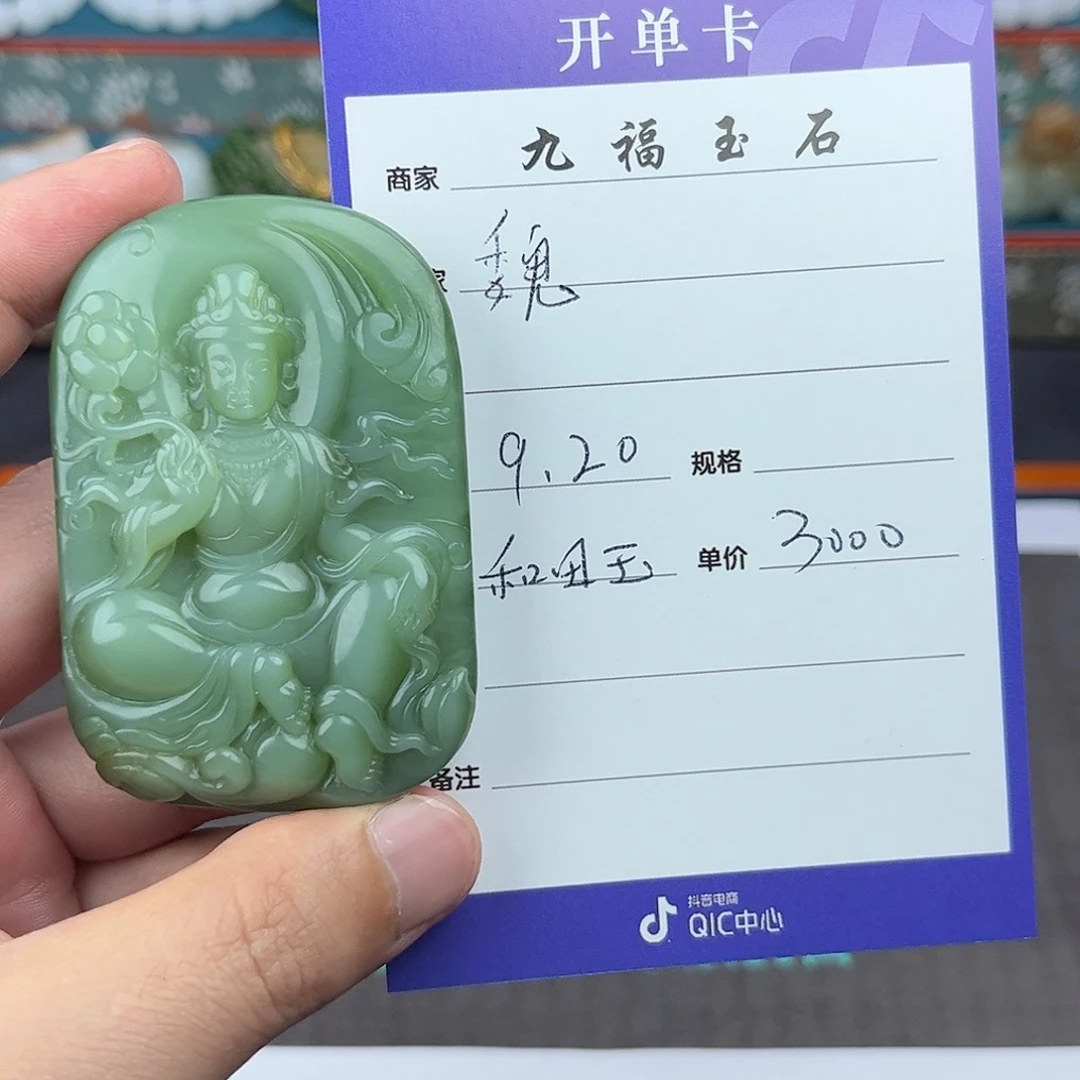 开单卡
商家 九福玉石
家 魏
9.20 规格
和田玉 单价 3000
备注
抖音电商
QIC中心